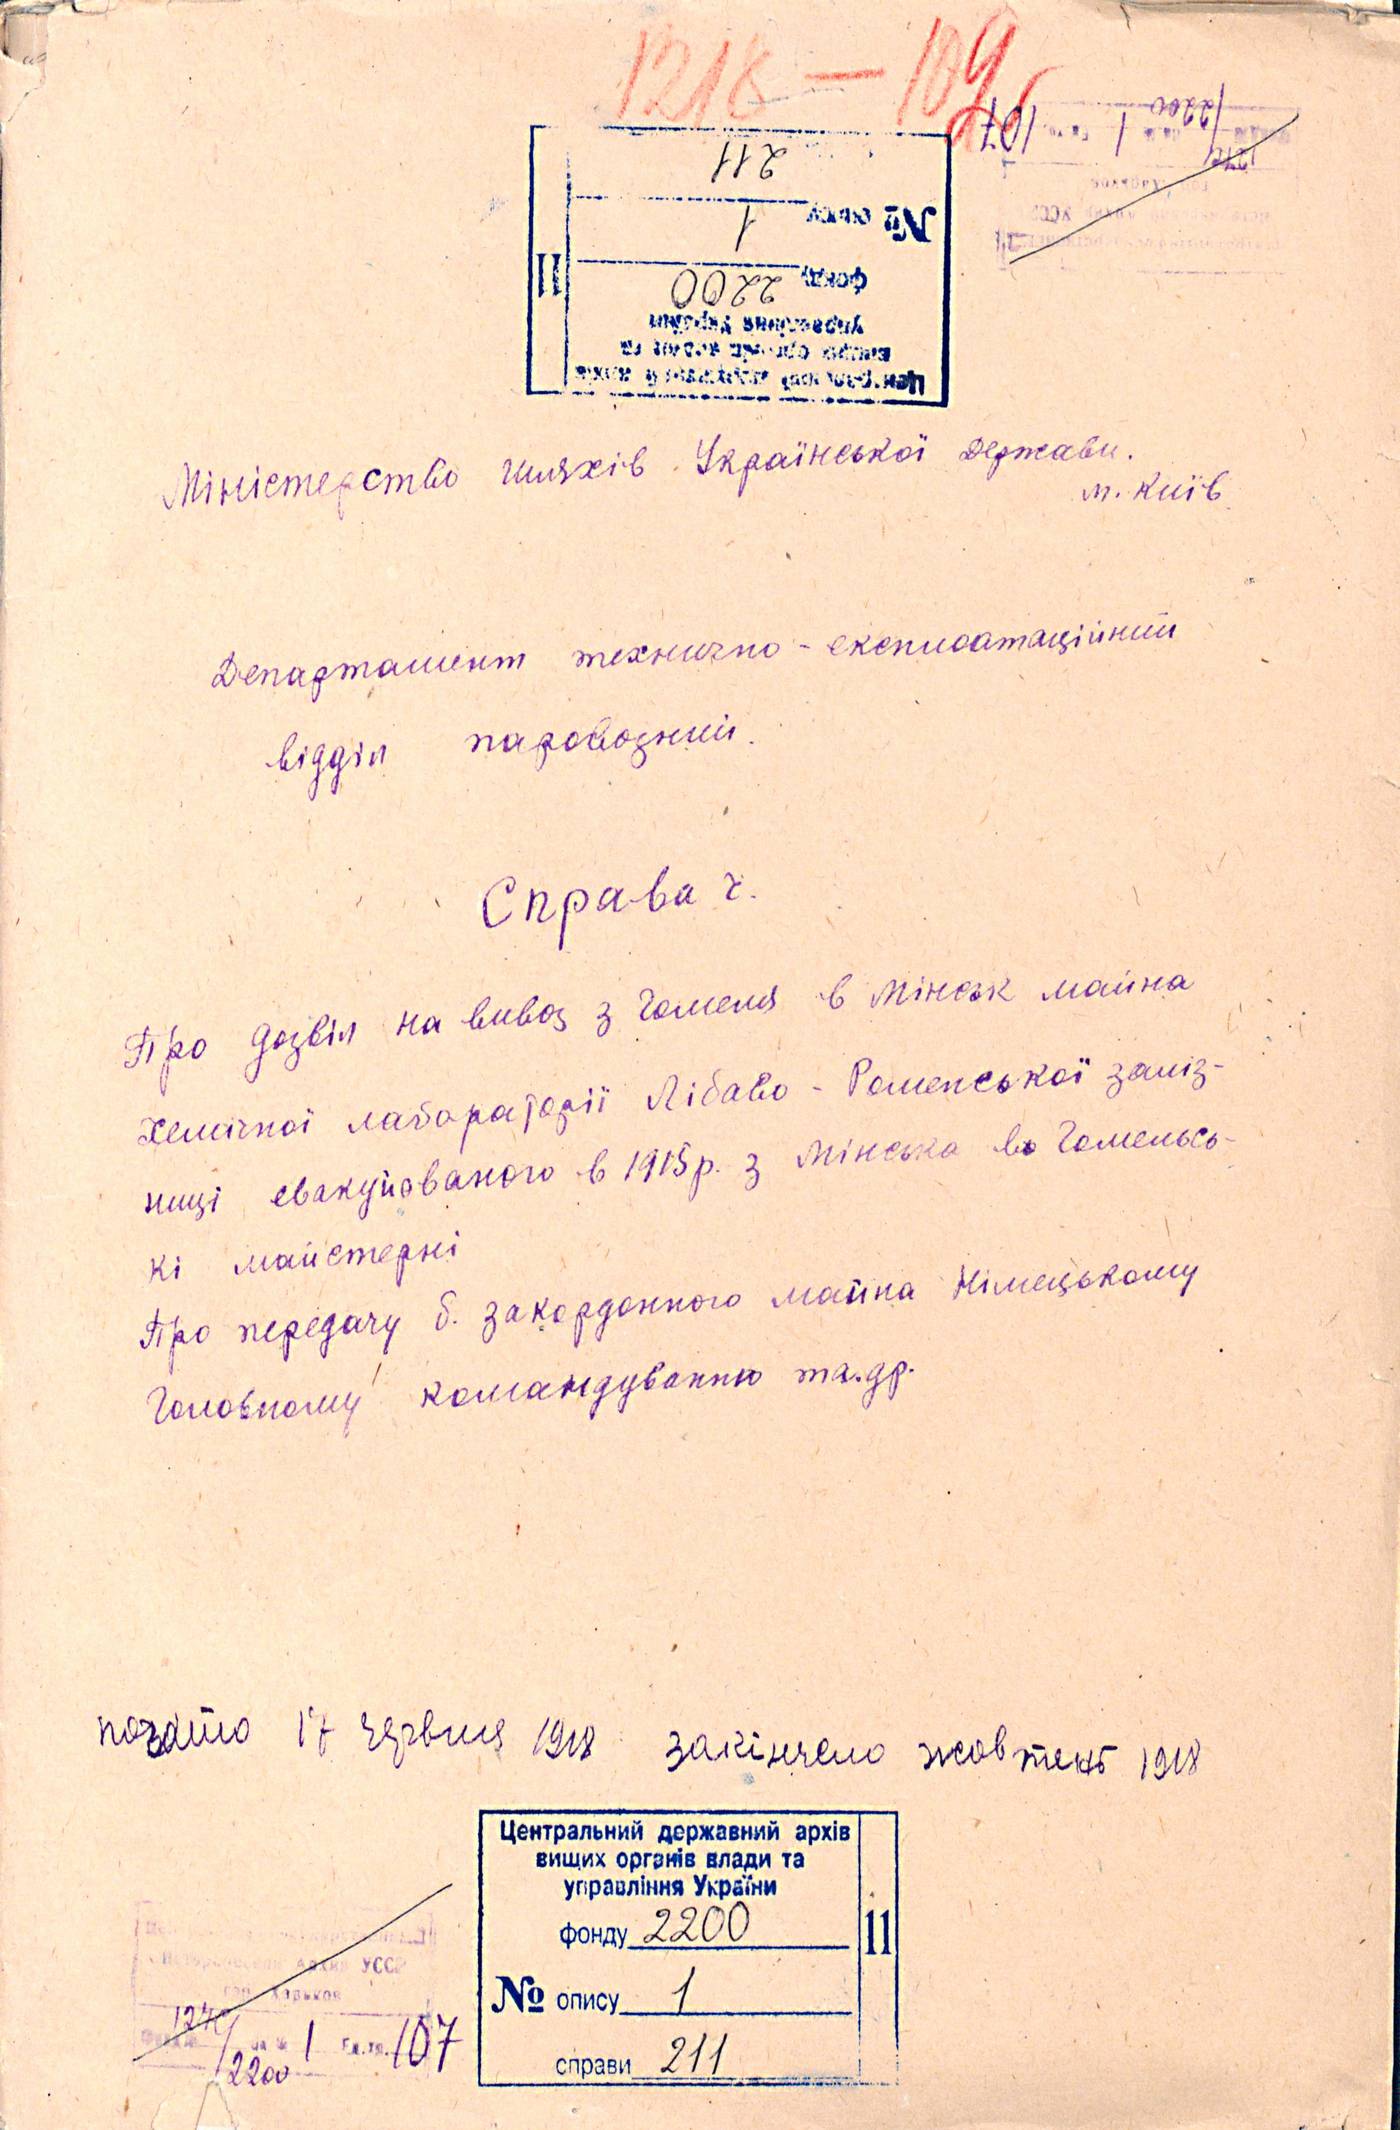 1218 — 109
211
№ опису 1
фонду 2200
управління України
вищих органів влади та
Центральний державний архів
11
2200
1 107
гор. Харьков
Міністерство шляхів Української Держави.
м. Київ
Департамент технично-експлоатаційний
відділ паровозний.
Справа ч.
Про дозвіл на вивоз з Гомеля в Мінськ майна
хемічної лабораторії Лібаво-Роменської заліз-
ниці евакуйованого в 1915 р. з Мінська в Гомельсь-
кі майстерні
Про передачу б. закордонного майна Німецькому
Головному командуванню та.др.
почато 17 червня 1918 закінчено жовтень 1918
Центральний державний архів
вищих органів влади та
управління України
фонду 2200
№ опису 1
справи 211
11
Исторический Архив УССР
гор. Харьков
Фонд № 2200 оп № 1 Ед.хр. 107